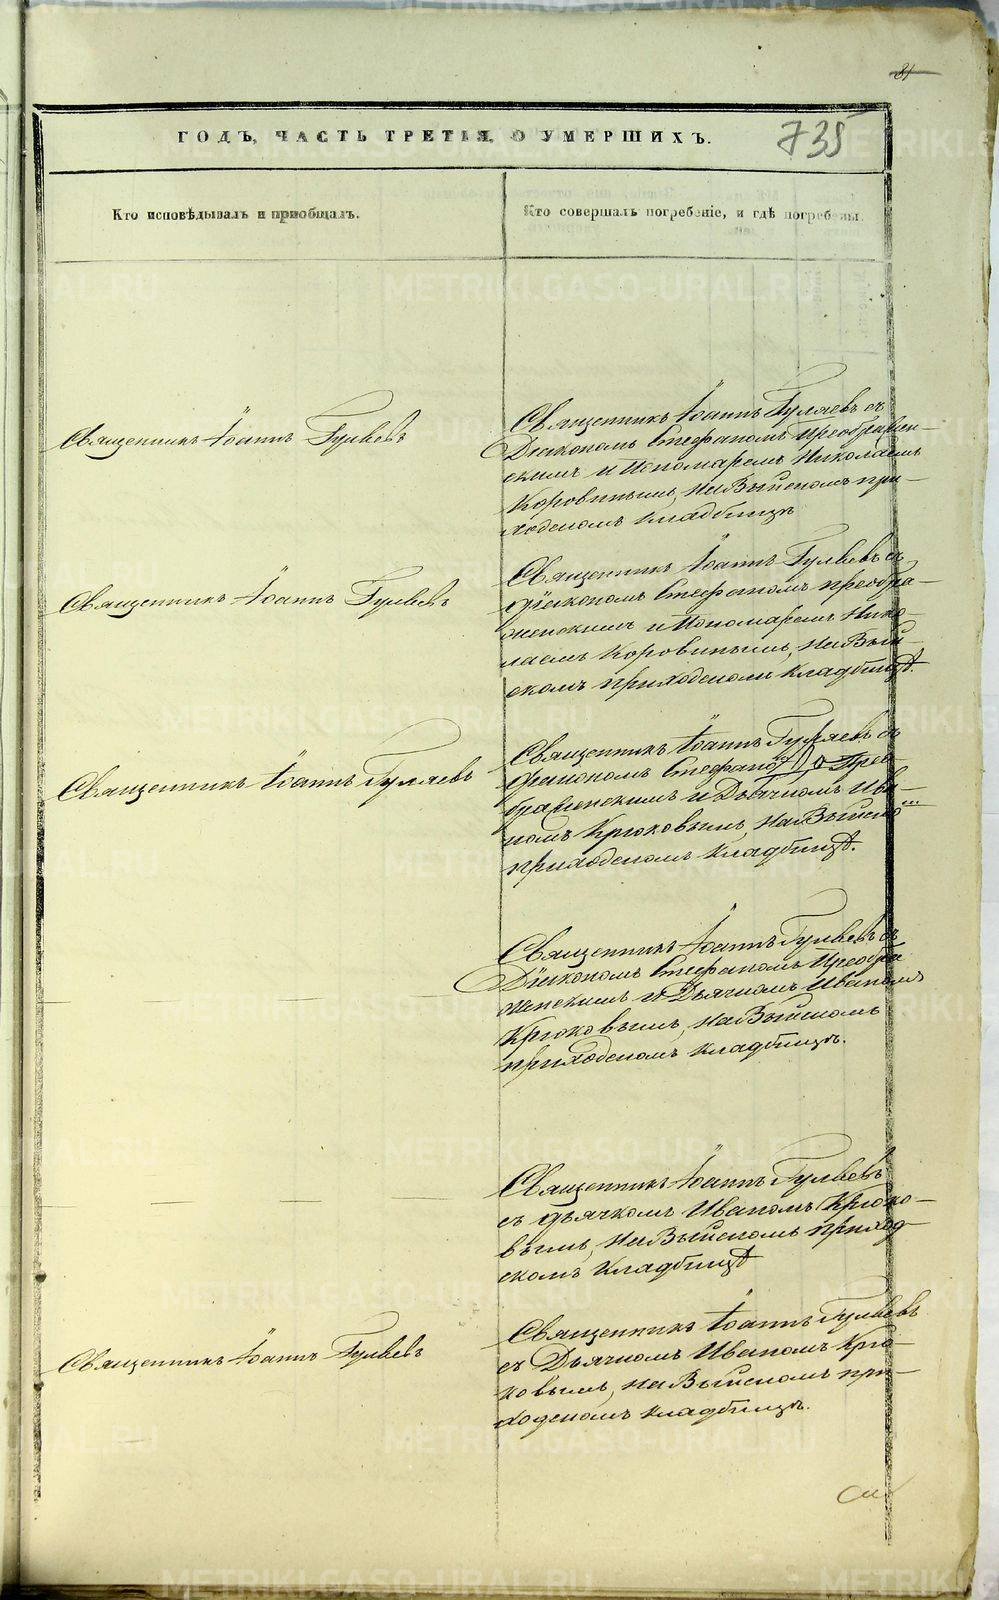 81
ГОДЪ, ЧАСТЬ ТРЕТІЯ, О УМЕРШИХЪ.
735
Кто исповѣдывалъ и пріобщалъ.
Кто совершалъ погребеніе, и гдѣ погребены.
Священникъ Іоаннъ Гуляевъ
Священникъ Іоаннъ Гуляевъ съ
Діакономъ Стефаномъ Преображен-
скимъ и Пономаремъ Николаемъ
Коровинымъ, на Выйскомъ при-
ходскомъ кладбищѣ
Священникъ Іоаннъ Гуляевъ
Священникъ Іоаннъ Гуляевъ съ
діакономъ Стефаномъ Преобра-
женскимъ и Пономаремъ Нико-
лаемъ Коровинымъ, на Вый-
скомъ приходскомъ кладбищѣ.
Священникъ Іоаннъ Гуляевъ
Священникъ Іоаннъ Гуляевъ съ
діакономъ Стефаномъ Прео-
браженскимъ и Дьячкомъ Ива-
номъ Крюковымъ, на Выйско...
приходскомъ кладбищѣ.
Священникъ Іоаннъ Гуляевъ съ
Діакономъ Стефаномъ Преобра
женскимъ и Дьячкомъ Иваномъ
Крюковымъ, на Выйскомъ
приходскомъ кладбищѣ.
Священникъ Іоаннъ Гуляевъ
съ дьячкомъ Иваномъ Крюко-
вымъ, на Выйскомъ приход
скомъ кладбищѣ
Священникъ Іоаннъ Гуляевъ
Священникъ Іоаннъ Гуляевъ
съ Дьячкомъ Иваномъ Крю-
ковымъ, на Выйскомъ при-
ходскомъ кладбищѣ.
METRIKI.GASO-URAL.RU